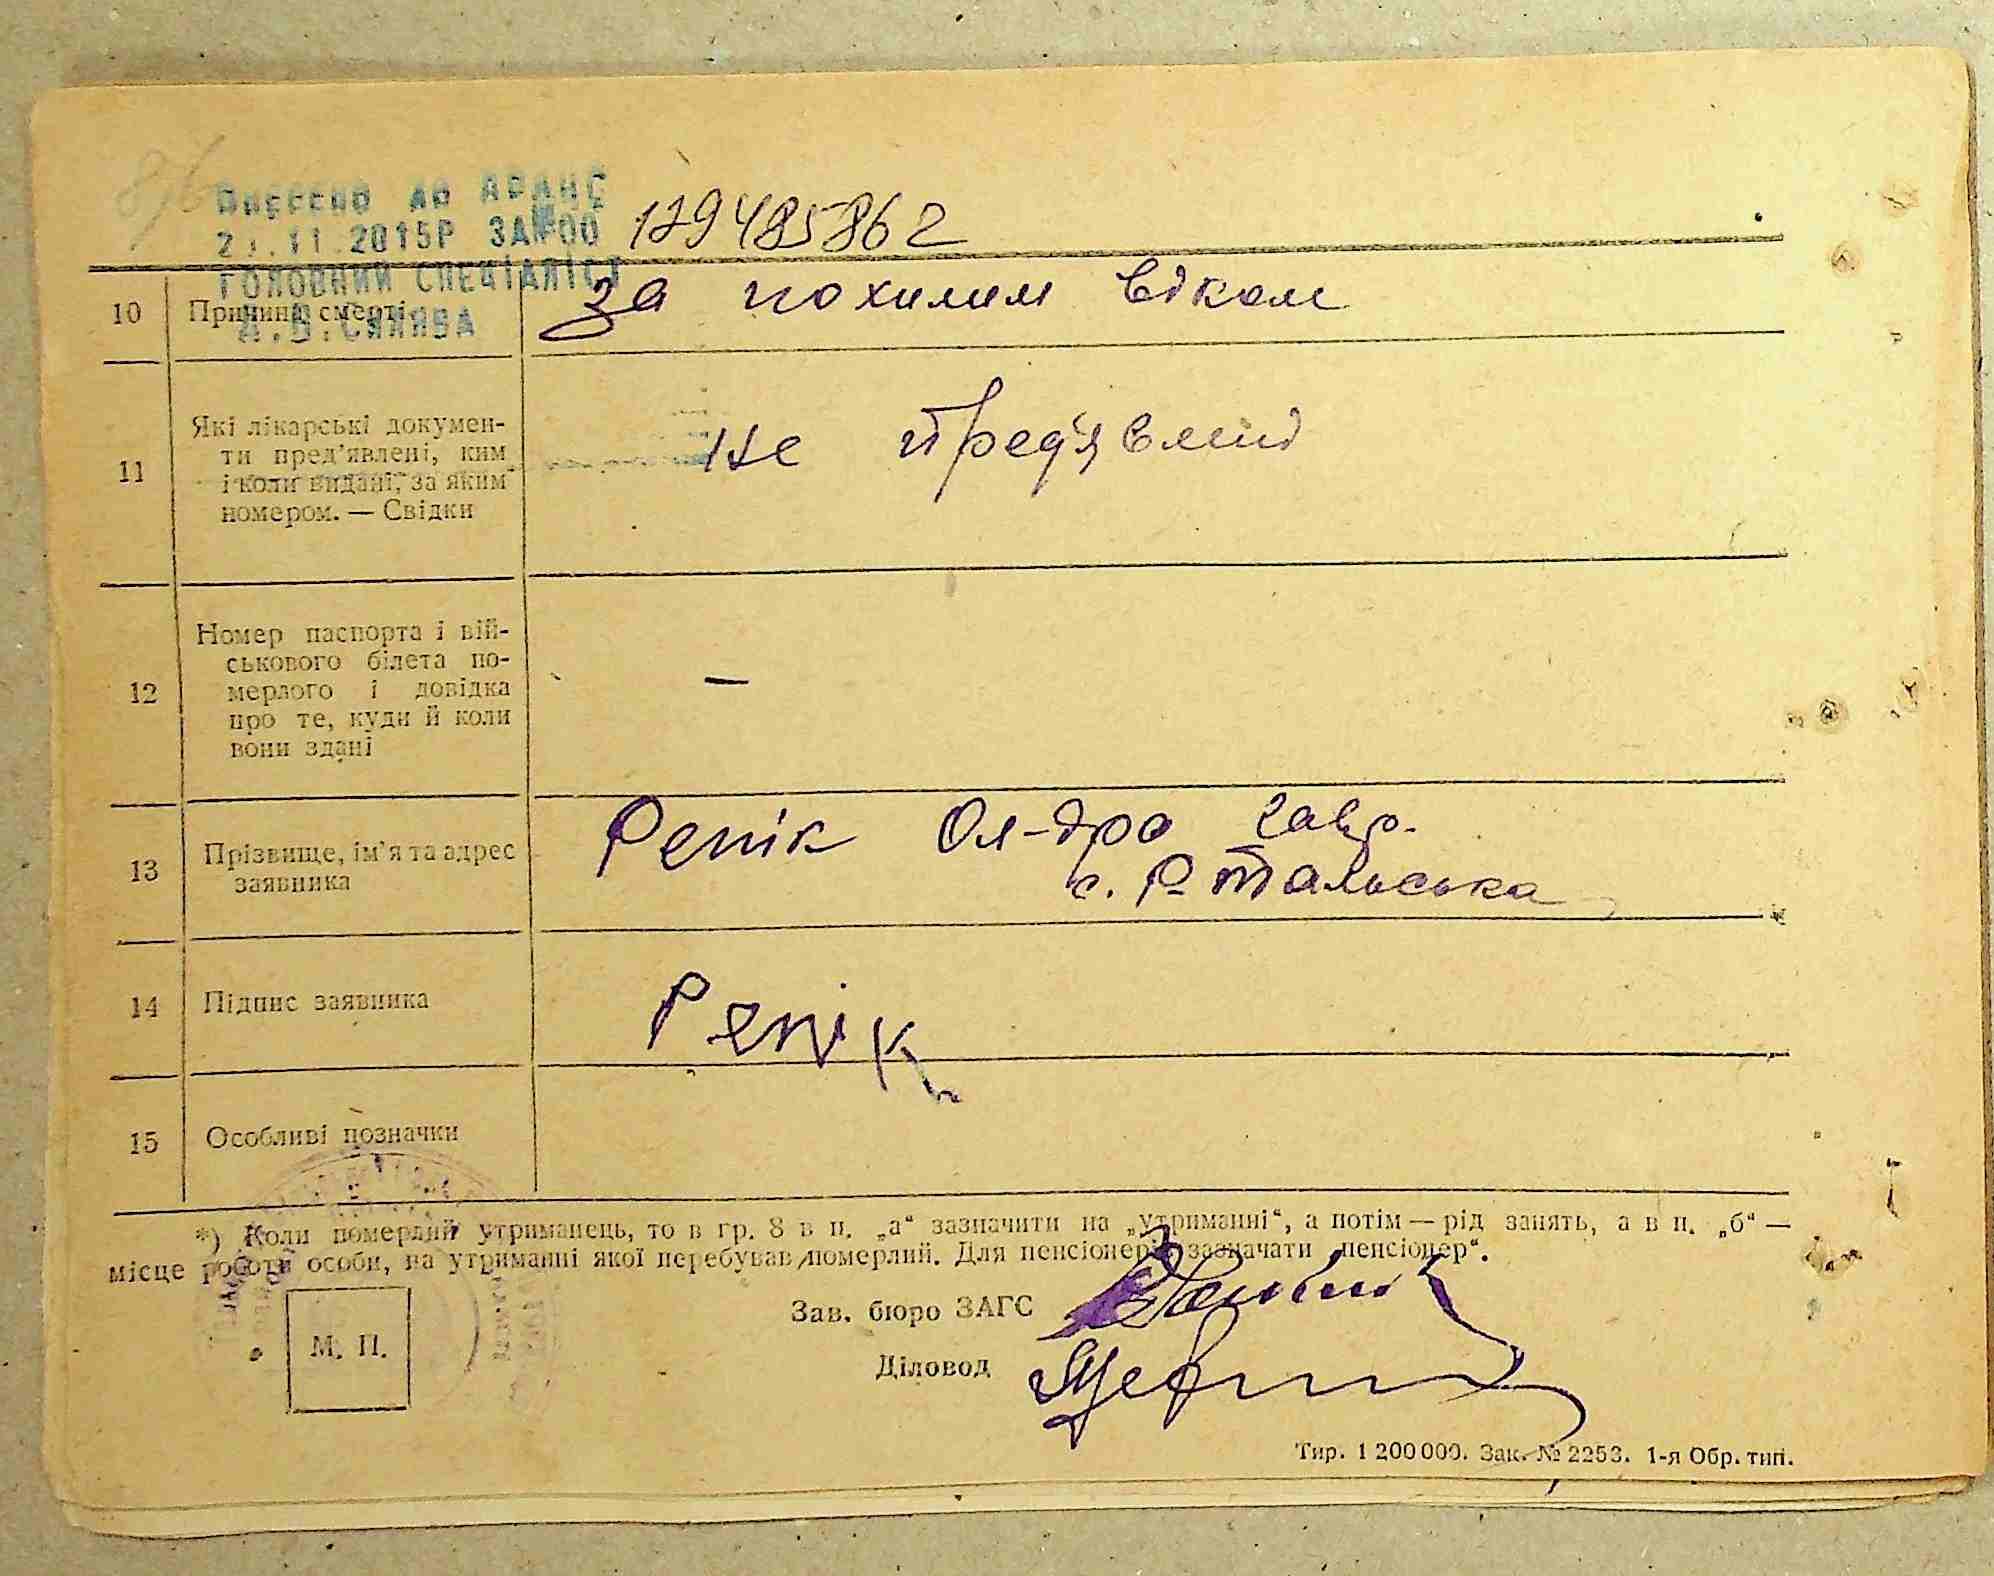 ВНЕСЕНО ДО ДРАЦС
2 .11.2015Р ЗА№00 179485862
ГОЛОВНИЙ СПЕЦІАЛІСТ
10 Причина смерті за похилим віком
11 Які лікарські докумен-
ти пред'явлені, ким
і коли видані, за яким
номером. — Свідки
не пред'явлені
12 Номер паспорта і вій-
ськового білета по-
мерлого і довідка
про те, куди й коли
вони здані
—
13 Прізвище, ім'я та адрес
заявника
Репік Ол-дра Гавр.
с. Р-Тальська
14 Підпис заявника Репік
15 Особливі позначки
*) Коли померлий утриманець, то в гр. 8 в п. „а“ зазначити на „утриманні“, а потім — рід занять, а в п. „б“ —
місце роботи особи, на утриманні якої перебував померлий. Для пенсіонерів зазначати „пенсіонер“.
Зав. бюро ЗАГС
М. П.
Діловод
Тир. 1 200 000. Зак. № 2253. 1-я Обр. тип.